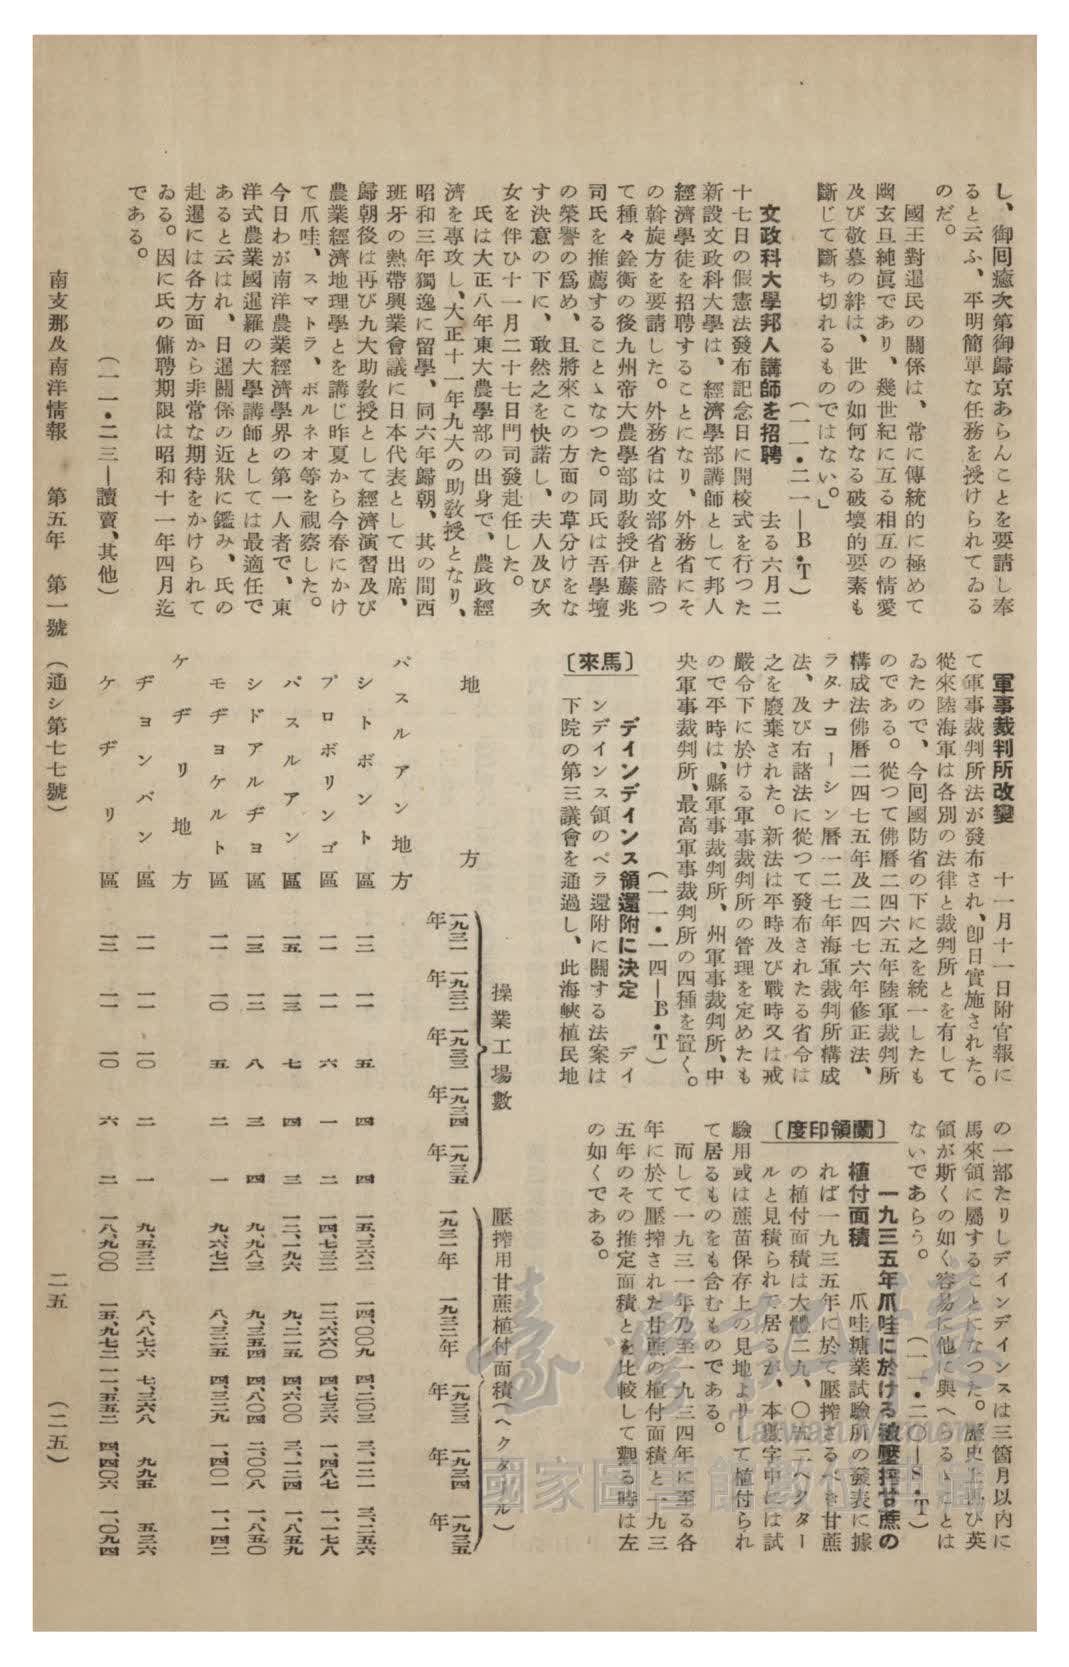 し、御囘癒次第御歸京あらんことを要請し奉
ると云ふ、平明簡單な任務を授けられてゐる
のだ。
國王對暹民の關係は、常に傳統的に極めて
幽玄且純眞であり、幾世紀に互る相互の情愛
及び敬慕の絆は、世の如何なる破壞的要素も
斷じて斷ち切れるものではない。」
（一一・二一―B・T）
文政科大學邦人講師を招聘　去る六月二
十七日の假憲法發布記念日に開校式を行つた
新設文政科大學は、經濟學部講師として邦人
經濟學徒を招聘することになり、外務省にそ
の斡旋方を要請した。外務省は文部省と諮つ
て種々銓衡の後九州帝大農學部助敎授伊藤兆
司氏を推薦することゝなつた。同氏は吾學壇
の榮譽の爲め、且將來この方面の草分けをな
す決意の下に、敢然之を快諾し、夫人及び次
女を伴ひ十一月二十七日門司發赴任した。
氏は大正八年東大農學部の出身で、農政經
濟を專攻し、大正十一年九大の助敎授となり、
昭和三年獨逸に留學、同六年歸朝、其の間西
班牙の熱帶興業會議に日本代表として出席、
歸朝後は再び九大助敎授として經濟演習及び
農業經濟地理學とを講じ昨夏から今春にかけ
て爪哇、スマトラ、ボルネオ等を視察した。
今日わが南洋農業經濟學界の第一人者で、東
洋式農業國暹羅の大學講師としては最適任で
あると云はれ、日暹關係の近狀に鑑み、氏の
赴暹には各方面から非常な期待をかけられて
ゐる。因に氏の傭聘期限は昭和十一年四月迄
である。
（一一・二三―讀賣、其他）
軍事裁判所改變　十一月十一日附官報に
て軍事裁判所法が發布され、卽日實施された。
從來陸海軍は各別の法律と裁判所とを有して
ゐたので、今囘國防省の下に之を統一したも
のである。從つて佛曆二四六五年陸軍裁判所
構成法佛曆二四七五年及二四七六年修正法、
ラタナコーシン曆一二七年海軍裁判所構成
法、及び右諸法に從つて發布されたる省令は
之を廢棄された。新法は平時及び戰時又は戒
嚴令下に於ける軍事裁判所の管理を定めたも
ので平時は、縣軍事裁判所、州軍事裁判所、中
央軍事裁判所、最高軍事裁判所の四種を置く。
（一一・一四―B・T）
〔馬來〕
デインデインス領還附に決定　デイ
ンデインス領のペラ還附に關する法案は
下院の第三議會を通過し、此海峽植民地
の一部たりしデインデインスは三箇月以内に
馬來領に屬することになつた。歷史上再び英
領が斯くの如く容易に他に與へらるゝことは
ないであらう。
（一一・二〇―S・T）
〔蘭領印度〕
一九三五年爪哇に於ける被壓搾甘蔗の
植付面積　爪哇糖業試驗所の發表に據
れば一九三五年に於て壓搾さるべき甘蔗
の植付面積は大體二九、〇五二ヘクター
ルと見積られて居るが、本數字中には試
驗用或は蔗苗保存上の見地よりして植付られ
て居るものをも含むものである。
而して一九三一年乃至一九三四年に至る各
年に於て壓搾された甘蔗の植付面積と一九三
五年のその推定面積とを比較して觀る時は左
の如くである。
地方　操業工場數　壓搾用甘蔗植付面積(ヘクタール)
一九三一年　一九三二年　一九三三年　一九三四年　一九三五年　一九三一年　一九三二年　一九三三年　一九三四年　一九三五年
パスルアン地方
シトボンド區　一二　一一　五　四　四　一五、三六二　一四、〇〇九　四、二〇三　三、一二一　三、二五六
プロボリンゴ區　一一　一一　六　一　二　一四、七三二　一三、六六〇　四、七三六　一、四八七　一、一七八
パスルアン區　一五　一三　七　四　三　一二、一九六　九、二一五　四、六〇〇　三、一二四　一、八五九
シドアルヂヨ區　一三　一二　八　三　四　九、九八三　九、三五四　四、八〇四　二、〇〇八　一、八五〇
モヂヨケルト區　一一　一〇　五　二　一　九、六七二　八、三二五　四、三二九　一、四〇一　一、一四二
ケヂリ地方
ヂヨンバン區　一一　一一　一〇　二　一　九、五三二　八、八七六　七、三六八　九九五　五三六
ケヂリ區　一三　一一　一〇　六　二　一八、九〇〇　一五、九七二　一一、五五二　四、四〇六　一、〇九四
南支那及南洋情報　第五年　第一號　（通シ第七七號）　二五　（二五）
臺灣記憶
Taiwan Memory
國家圖書館數位典藏